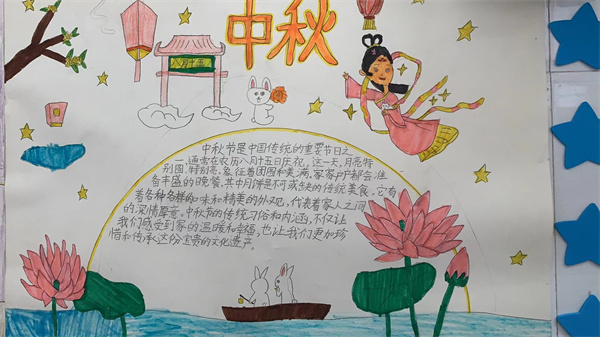 中秋
八月十五
中秋节是中国传统的重要节日之
一,通常在农历八月十五日庆祝,这一天,月亮特
别圆,特别亮,象征着团圆和美满,家家户户都会准
备丰盛的晚餐,其中月饼是不可或缺的传统美食。它有
着各种各样的口味和精美的外观,代表着家人之间
的深情厚意。中秋节的传统习俗和内涵,不仅让
我们感受到家的温暖和幸福,也让我们更加珍
惜和传承这份宝贵的文化遗产。